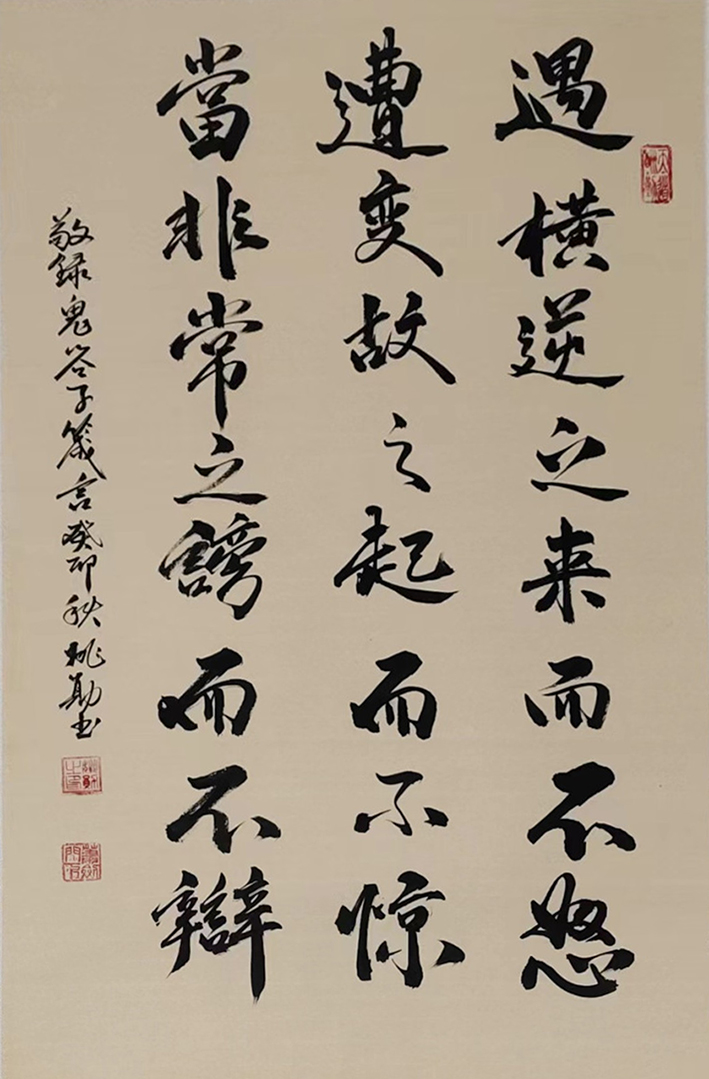 遇横逆之来而不怒
遭变故之起而不惊
當非常之謗而不辯
敬録鬼谷子箴言癸卯秋姚勛书